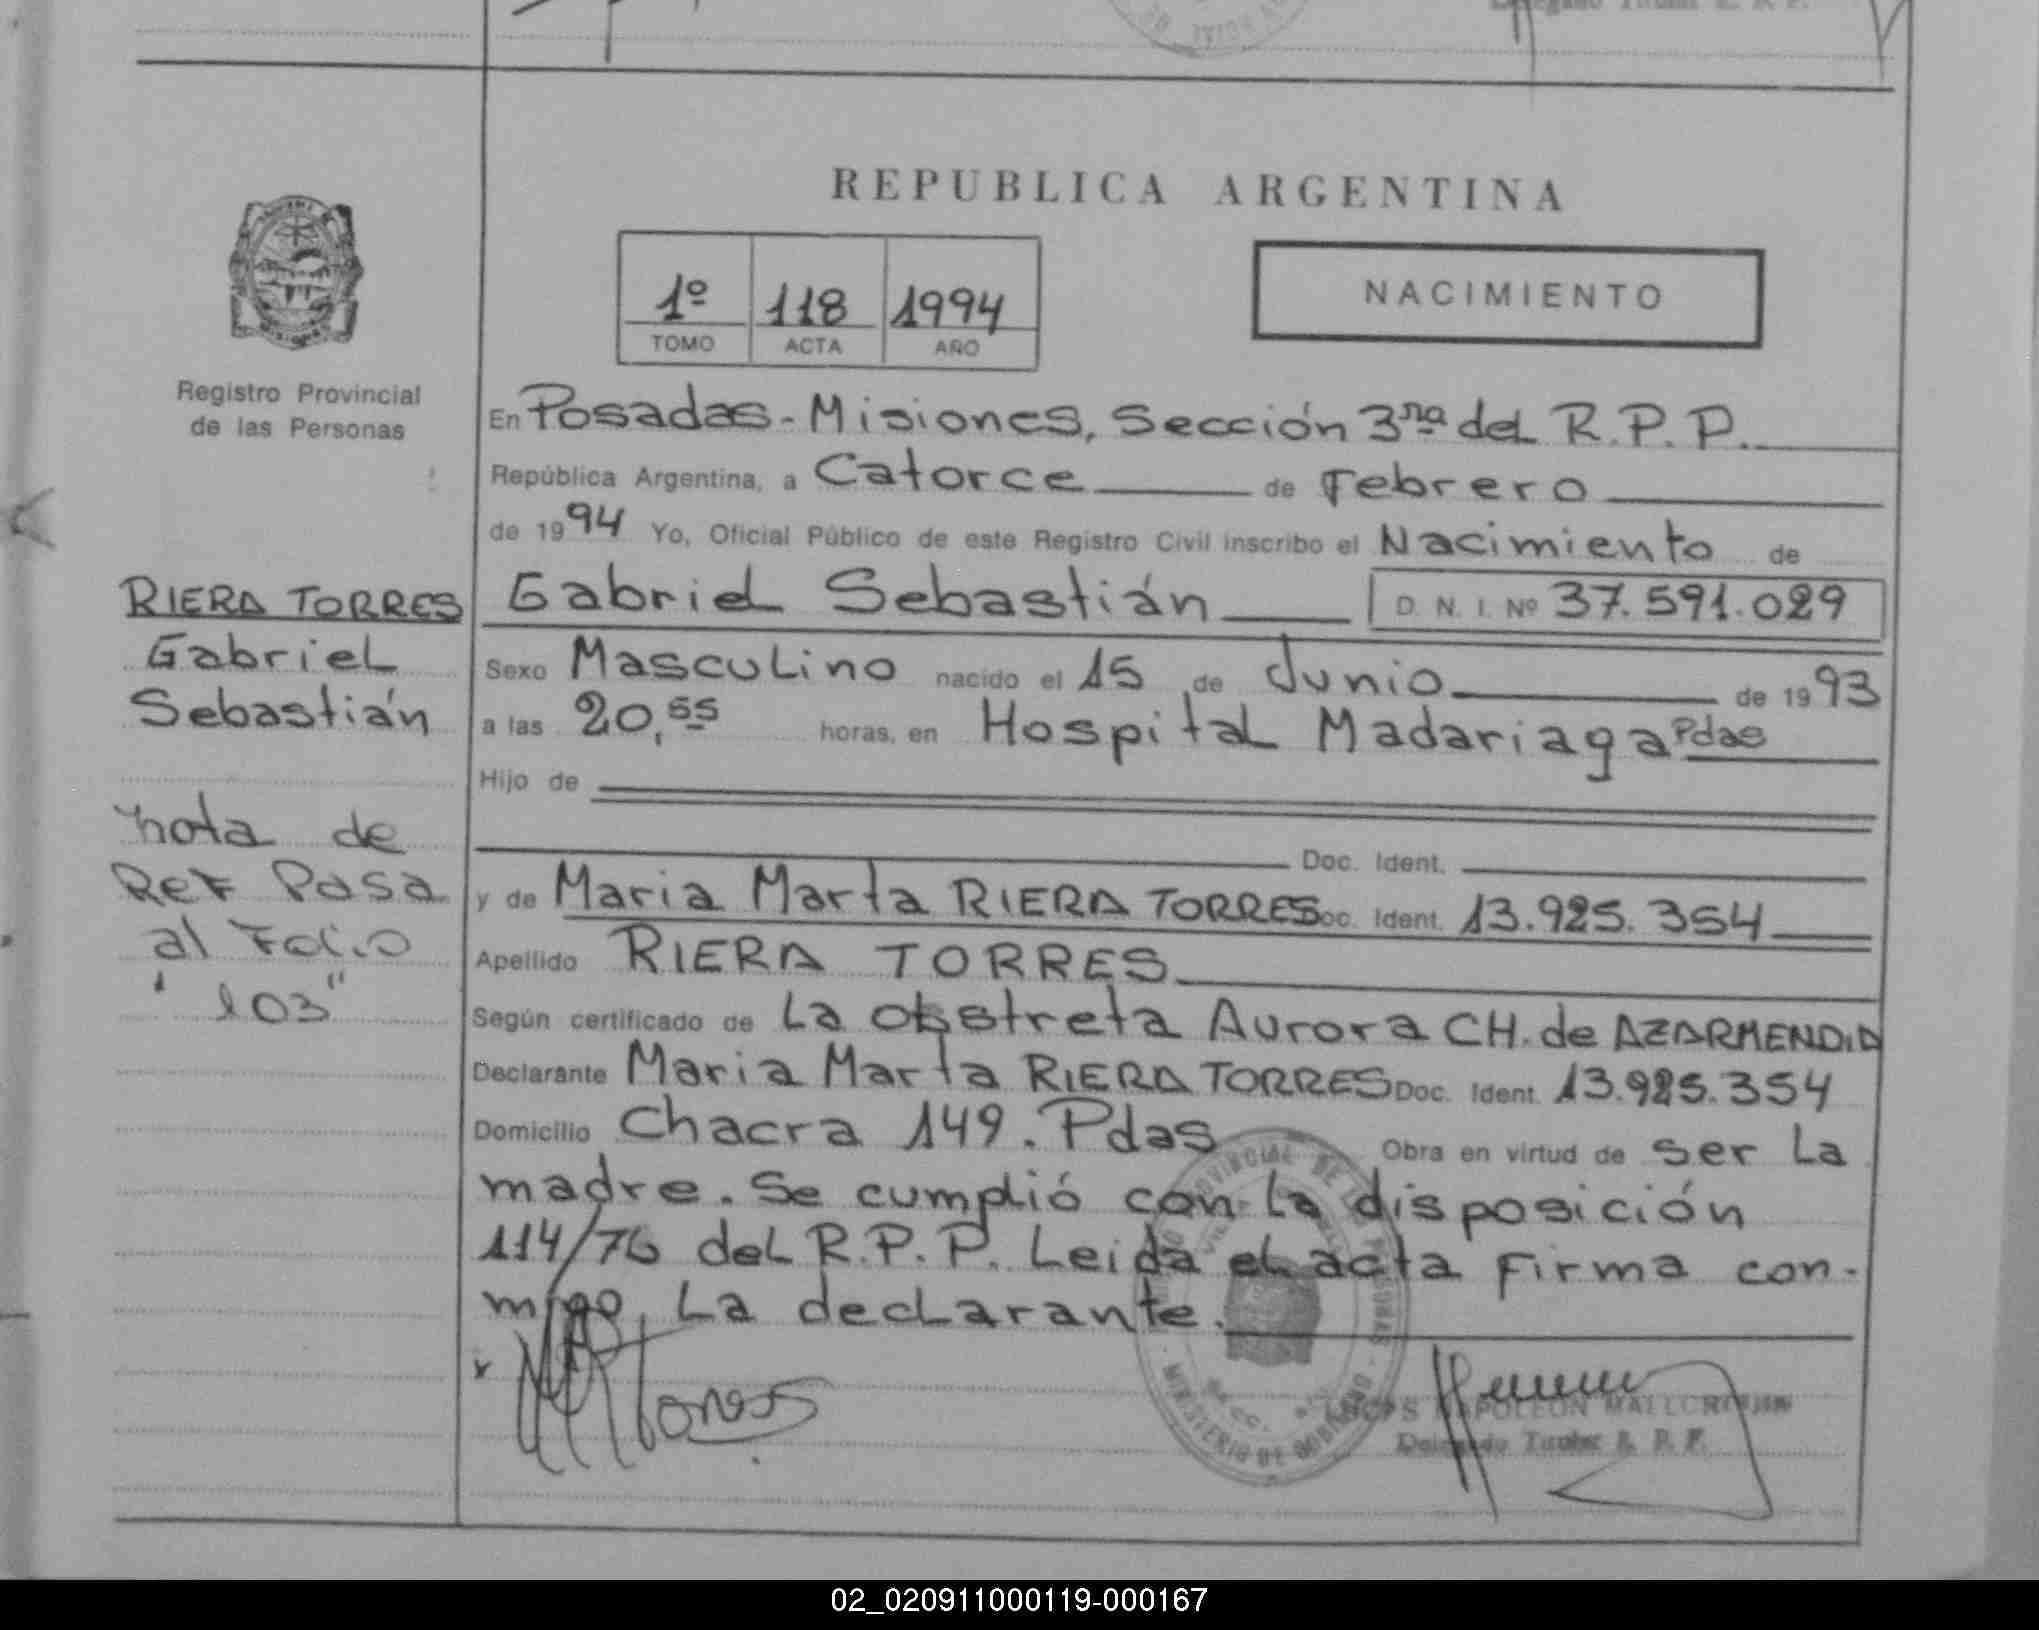 REPUBLICA ARGENTINA
1º 118 1994
TOMO ACTA AÑO
NACIMIENTO
Registro Provincial
de las Personas
En Posadas - Misiones, Sección 3ra del R.P.P.
República Argentina, a Catorce de Febrero
de 1994 Yo, Oficial Público de este Registro Civil inscribo el Nacimiento de
Gabriel Sebastián D. N. I. Nº 37.591.029
Sexo Masculino nacido el 15 de Junio de 1993
a las 20,55 horas, en Hospital Madariaga Pdas
Hijo de
Doc. Ident.
y de Maria Marta RIERA TORRES Doc. Ident. 13.925.354
Apellido RIERA TORRES
Según certificado de La obstreta Aurora CH. de AZARMENDIA
Declarante Maria Marta RIERA TORRES Doc. Ident. 13.925.354
Domicilio Chacra 149. Pdas Obra en virtud de ser La
madre. Se cumplió con La disposición
114/76 del R.P.P. Leida el acta Firma con-
migo, La declarante.
RIERA TORRES
Gabriel
Sebastián
nota de
Ref Pasa
al Folio
"103"
NAPOLEON
Delegado Titular R. P. P.
MINISTERIO DE GOBIERNO
02_020911000119-000167